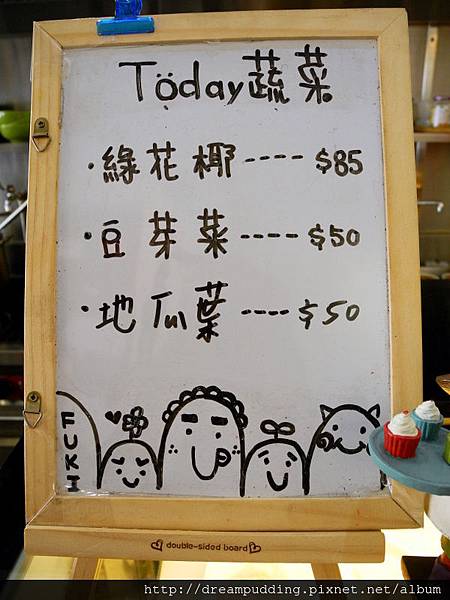 Today蔬菜
·綠花椰----$85
·豆芽菜----$50
·地瓜葉----$50
FUKI
double-sided board
http://dreampudding.pixnet.net/album